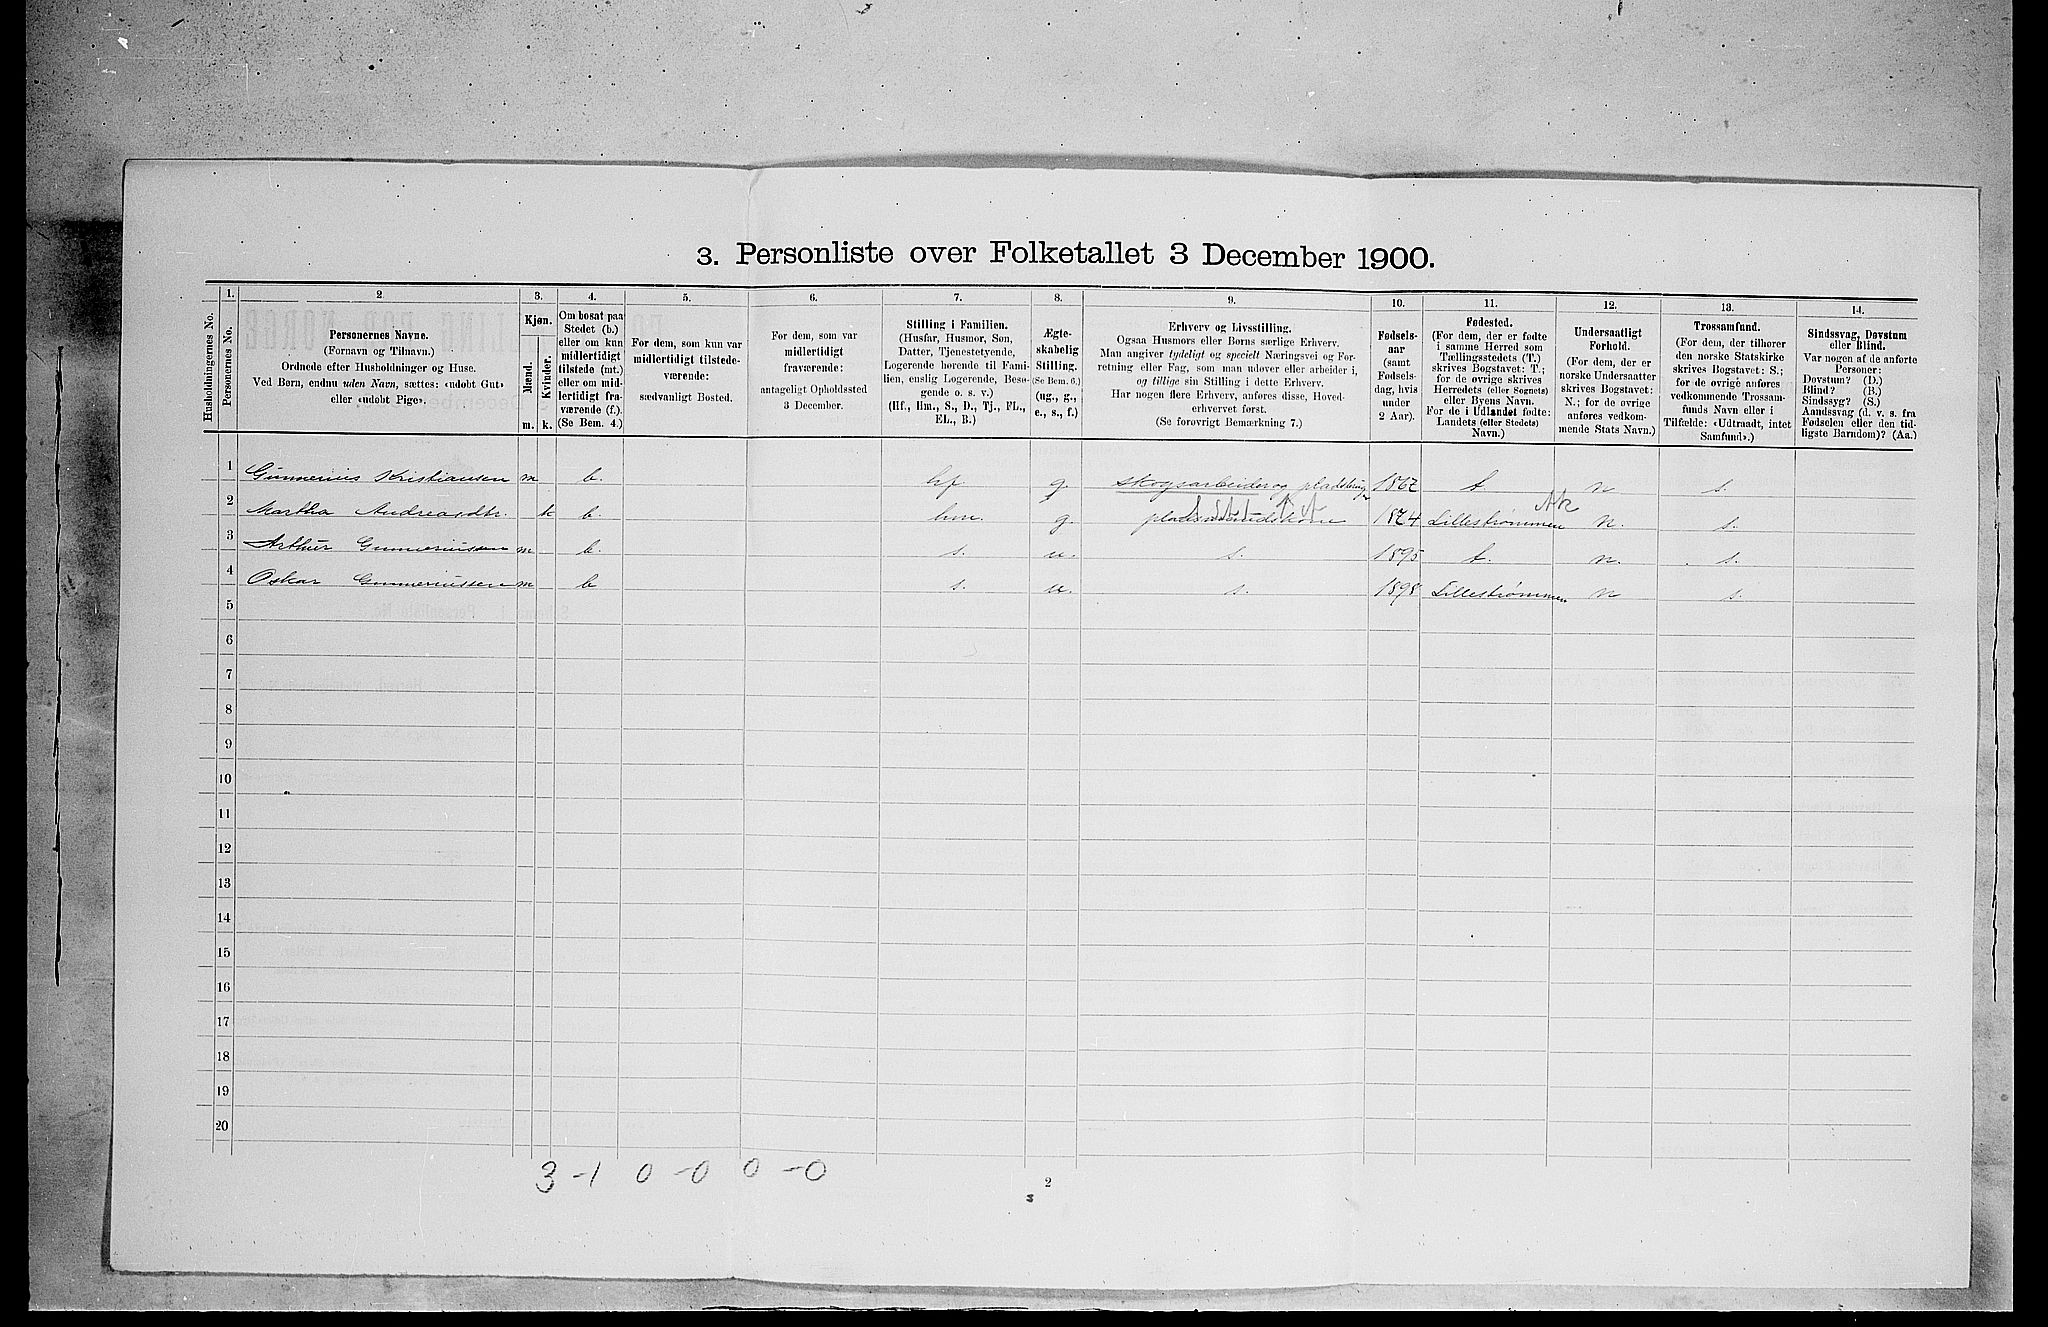 3. Personliste over Folketallet 3 December 1900.
1. 2. 3. 4. 5. 6. 7. 8. 9. 10. 11. 12. 13. 14.
Husholdningernes No.
Personernes No.
Personernes Navne.
(Fornavn og Tilnavn.)
Ordnede efter Husholdninger og Huse.
Ved Børn, endnu uden Navn, sættes: «udøbt Gut»
eller «udøbt Pige».
Kjøn.
Mænd.
Kvinder.
m. k.
Om bosat paa
Stedet (b.)
eller om kun
midlertidigt
tilstede (mt.)
eller om mid-
lertidigt fra-
værende (f.).
(Se Bem. 4.)
For dem, som kun var
midlertidigt tilstede-
værende:
sædvanligt Bosted.
For dem, som var
midlertidigt
fraværende:
antageligt Opholdssted
3 December.
Stilling i Familien.
(Husfar, Husmor, Søn,
Datter, Tjenestetyende,
Logerende hørende til Fami-
lien, enslig Logerende, Besø-
gende o. s. v.)
(Hf., Hm., S., D., Tj., FL.,
EL., B.)
Ægte-
skabelig
Stilling.
(Se Bem. 6.)
(ug., g.,
e., s., f.)
Erhverv og Livsstilling.
Ogsaa Husmors eller Børns særlige Erhverv.
Man angiver tydeligt og specielt Næringsvei og For-
retning eller Fag, som man udøver eller arbeider i,
og tillige sin Stilling i dette Erhverv.
Har nogen flere Erhverv, anføres disse, Hoved-
erhvervet først.
(Se forøvrigt Bemærkning 7.)
Fødsels-
aar
(samt
Fødsels-
dag, hvis
under
2 Aar).
Fødested.
(For dem, der er fødte
i samme Herred som
Tællingsstedets (T.)
skrives Bogstavet: T.;
for de øvrige skrives
Herredets (eller Sognets)
eller Byens Navn.
For de i Udlandet fødte:
Landets (eller Stedets)
Navn.)
Undersaatligt
Forhold.
(For dem, der er
norske Undersaatter
skrives Bogstavet:
N.; for de øvrige
anføres vedkom-
mende Stats Navn.)
Trossamfund.
(For dem, der tilhører
den norske Statskirke
skrives Bogstavet: S.;
for de øvrige anføres
vedkommende Trossam-
funds Navn eller i
Tilfælde: «Udtraadt, intet
Samfund».)
Sindssvag, Døvstum
eller Blind.
Var nogen af de anførte
Personer:
Døvstum? (D.)
Blind? (B.)
Sindssyg? (S.)
Aandssvag (d. v. s. fra
Fødselen eller den tid-
ligste Barndom)? (Aa.)
1 Gunnerius Kristiansen m b. hf. g. skogsarbeider og 1867 t. n s.
2 Martha Andreasdtr. k b. hm. g. pladsmandskone 1874 Lillestrømmen Ak n. s.
3 Arthur Gunneriussen m b. s. u. s. 1895 t. n. s.
4 Oskar Gunneriussen m b s. u. s. 1898 Lillestrømmen n s.
5
6
7
8
9
10
11
12
13
14
15
16
17
18
19
20
3 - 1 0 - 0 0 - 0
2